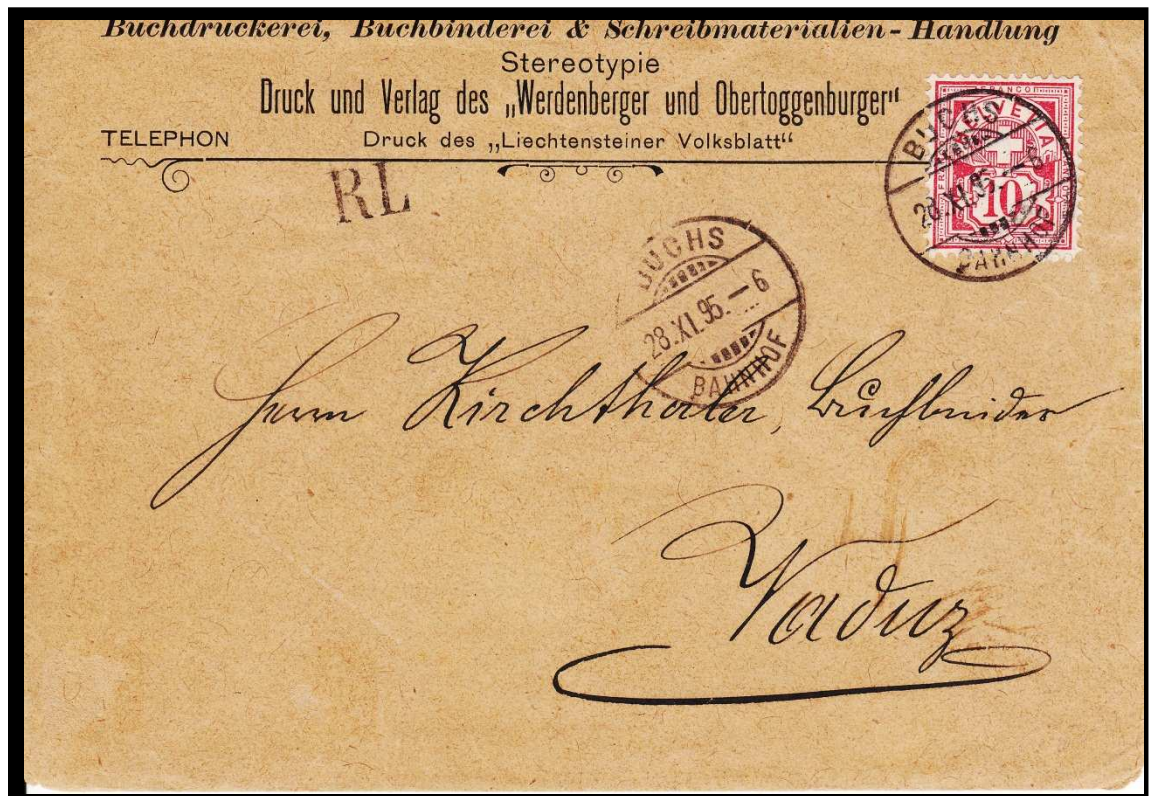 Buchdruckerei, Buchbinderei & Schreibmaterialien-Handlung
Stereotypie
Druck und Verlag des „Werdenberger und Obertoggenburger“
TELEPHON
Druck des „Liechtensteiner Volksblatt“
RL
FRANCO
HELVETIA
10
BUCHS
28.XI.95.–6
BAHNHOF
BUCHS
28.XI.95.–6
BAHNHOF
Herrn Kirchthaler, Buchbinder
Vaduz